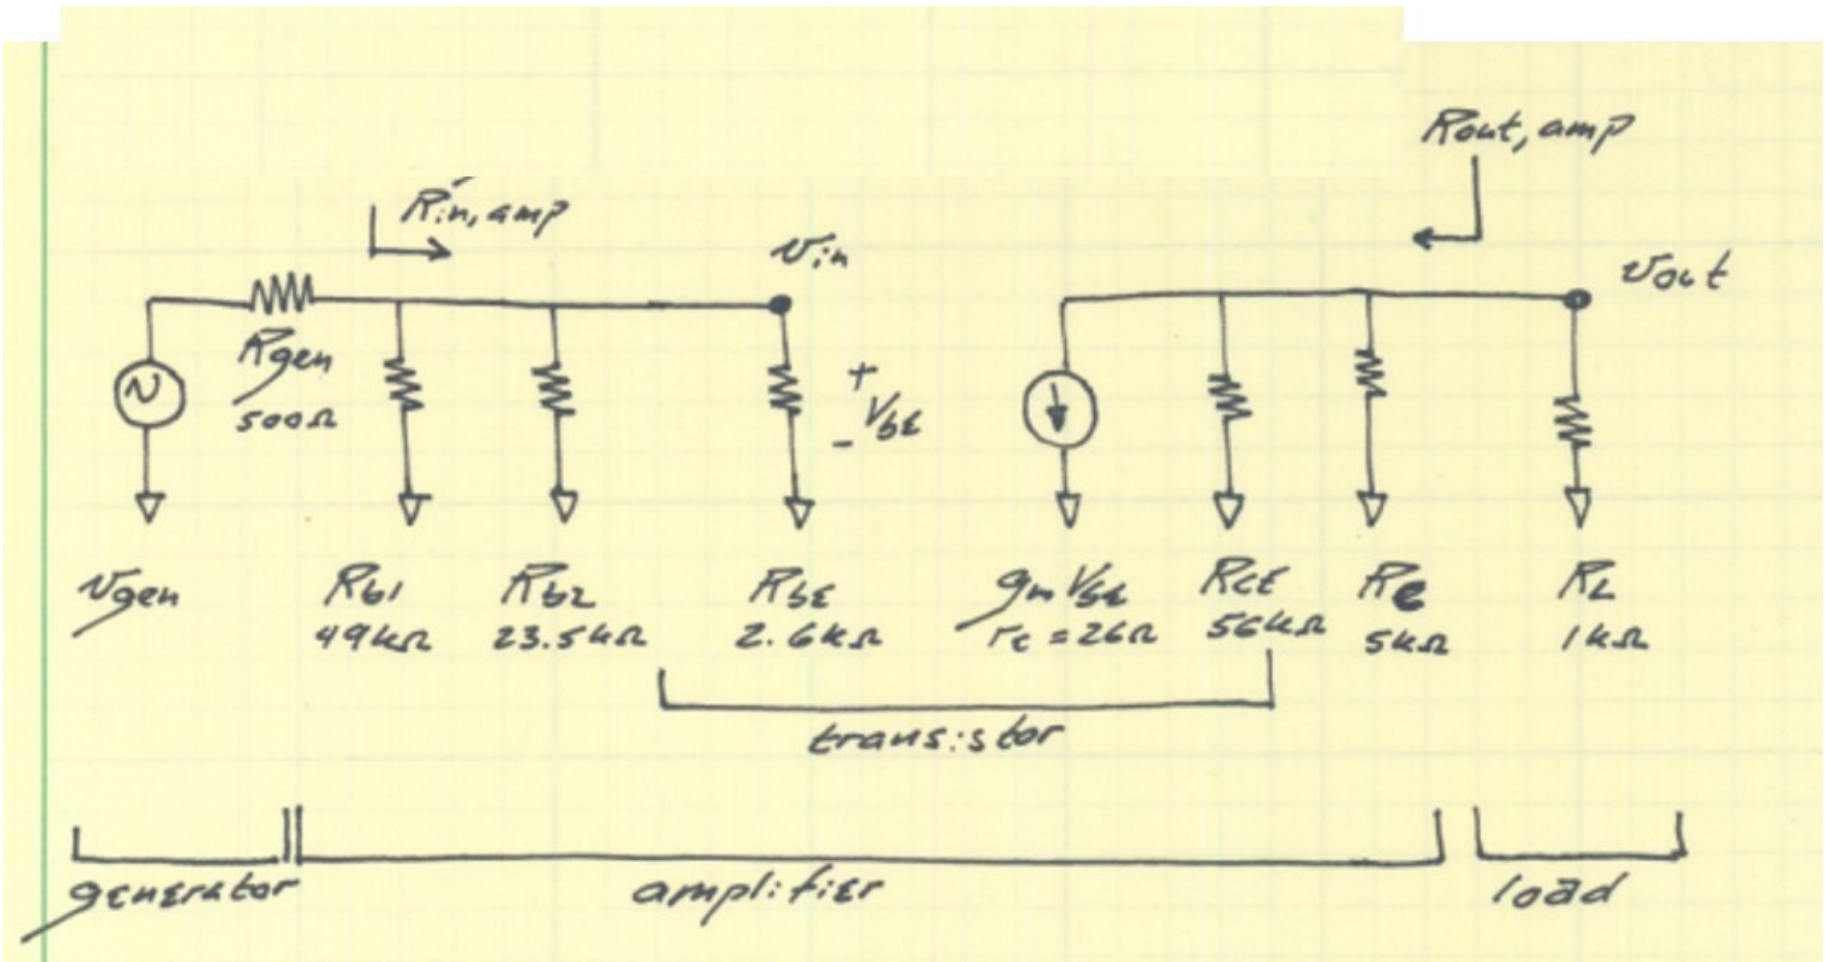 Rout, amp
Rin, amp
vin
vout
Rgen
500Ω
+
Vbe
-
vgen
Rb1
49kΩ
Rb2
23.5kΩ
Rbe
2.6kΩ
gmVbe
re = 26Ω
RCE
56kΩ
Re
5kΩ
RL
1kΩ
transistor
generator
amplifier
load